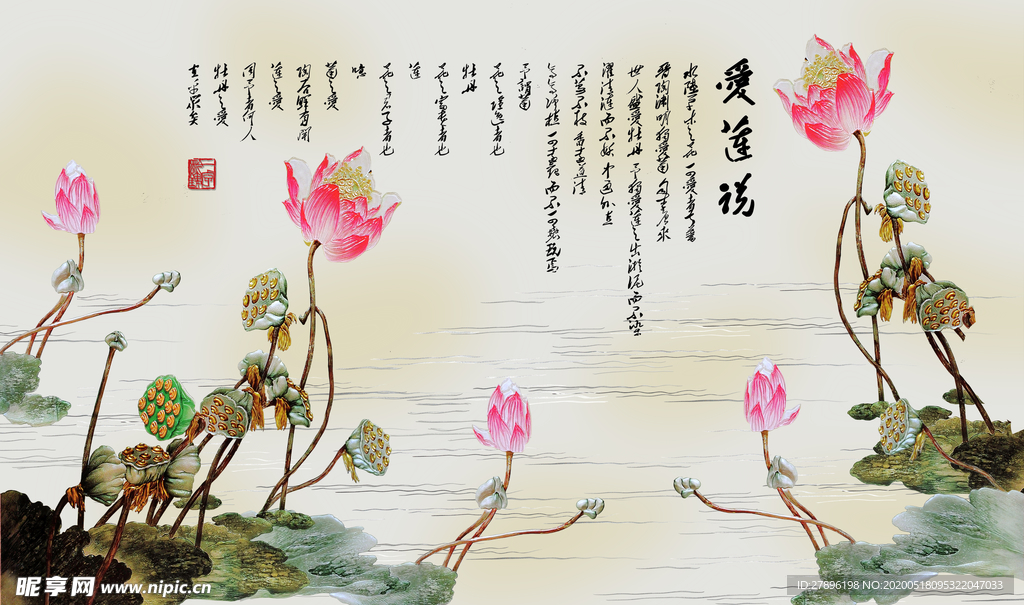 愛蓮説
水陸草木之花可愛者甚蕃
晋陶渊明独愛菊自李唐来
世人盛愛牡丹予独愛莲之出淤泥而不染
濯清涟而不妖中通外直
不蔓不枝香远益清
亭亭净植可远观而不可亵玩焉
予謂菊
花之隐逸者也
牡丹
花之富贵者也
莲
花之君子者也
噫
菊之愛
陶后鲜有闻
莲之愛
同予者何人
牡丹之愛
宜乎众矣
昵享网 www.nipic.cn
ID:27896198 NO:20200518095322047033